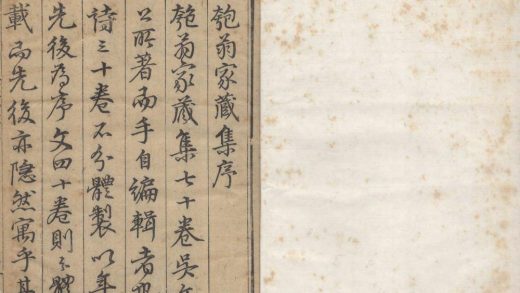 匏翁家藏集序
匏翁家藏集七十卷吳文
公所著而手自編輯者也
詩三十卷不分體製以年
先後為序文四十卷則分體
載而先後亦隐然寓乎其